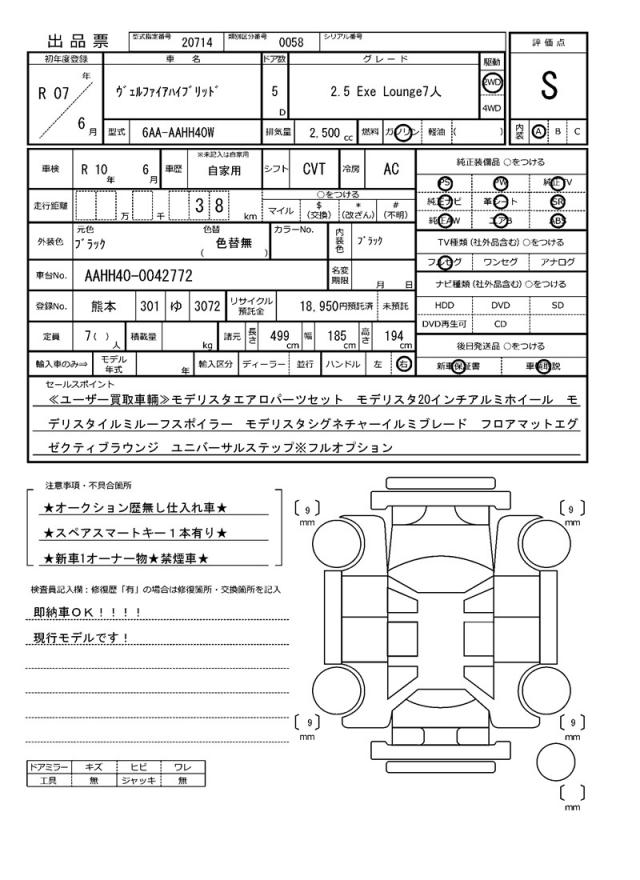 出品票 型式指定番号 20714 類別区分番号 0058 シリアル番号
評価点 S
内装 A B C
初年度登録 車名 ドア数 グレード 駆動
R 07 年 6 月 ヴェルファイアハイブリッド 5 D 2.5 Exe Lounge7人 2WD 4WD
型式 6AA-AAHH40W 排気量 2,500 cc 燃料 ガソリン 軽油 ( )
車検 R 10 年 6 月 車歴 ※未記入は自家用 自家用 シフト CVT 冷房 AC
走行距離 万 千 3 8 km ○をつける マイル $ (交換) * (改ざん) # (不明)
外装色 元色 ブラック 色替 ( 色替無 ) カラーNo. 内装色 ブラック
車台No. AAHH40-0042772 名変期限 月 日
登録No. 熊本 301 ゆ 3072 リサイクル預託金 18,950円預託済 未預託
定員 7( ) 人 積載量 kg 諸元 長さ 499 cm 幅 185 cm 高さ 194 cm
輸入車のみ⇒ モデル年式 年 輸入区分 ディーラー 並行 ハンドル 左 右
純正装備品 ○をつける
PS PW 純正TV
純正ナビ 革シート SR
純正AW エアB ABS
TV種類 (社外品含む) ○をつける
フルセグ ワンセグ アナログ
ナビ種類 (社外品含む) ○をつける
HDD DVD SD
DVD再生可 CD
後日発送品 ○をつける
新車保証書 車輌取説
セールスポイント
≪ユーザー買取車輌≫モデリスタエアロパーツセット　モデリスタ20インチアルミホイール　モ
デリスタイルミルーフスポイラー　モデリスタシグネチャーイルミブレード　フロアマットエグ
ゼクティブラウンジ　ユニバーサルステップ※フルオプション
注意事項・不具合箇所
★オークション歴無し仕入れ車★
★スペアスマートキー１本有り★
★新車1オーナー物★禁煙車★
検査員記入欄：修復歴「有」の場合は修復箇所・交換箇所を記入
即納車ＯＫ！！！！
現行モデルです！
ドアミラー キズ ヒビ ワレ
工具 無 ジャッキ 無
[ 9 ] mm
[ 9 ] mm
[ 9 ] mm
[ 9 ] mm
[ ] mm